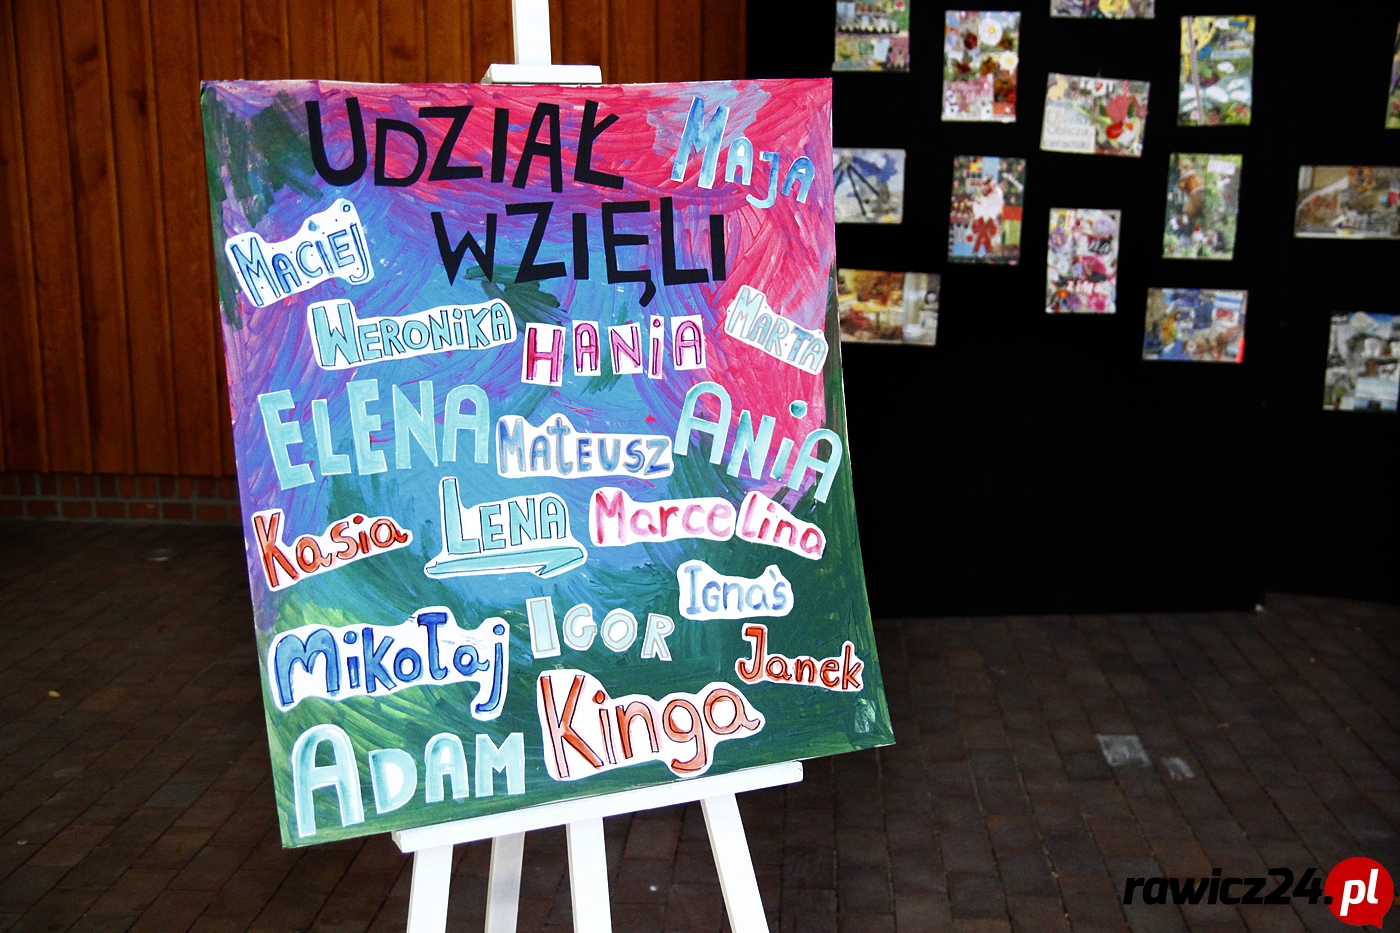 UDZIAŁ
WZIĘLI
Maja
Maciej
Weronika
Hania
Marta
Elena
Mateusz
Ania
Kasia
Lena
Marcelina
Ignaś
Mikołaj
Igor
Janek
Kinga
Adam
Oblicza
zima
rawicz24.pl